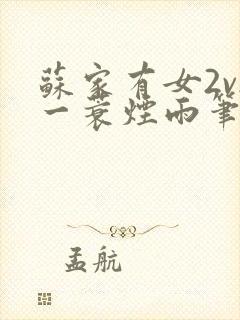 蘇家有女2v
一蓑煙雨筆
孟航